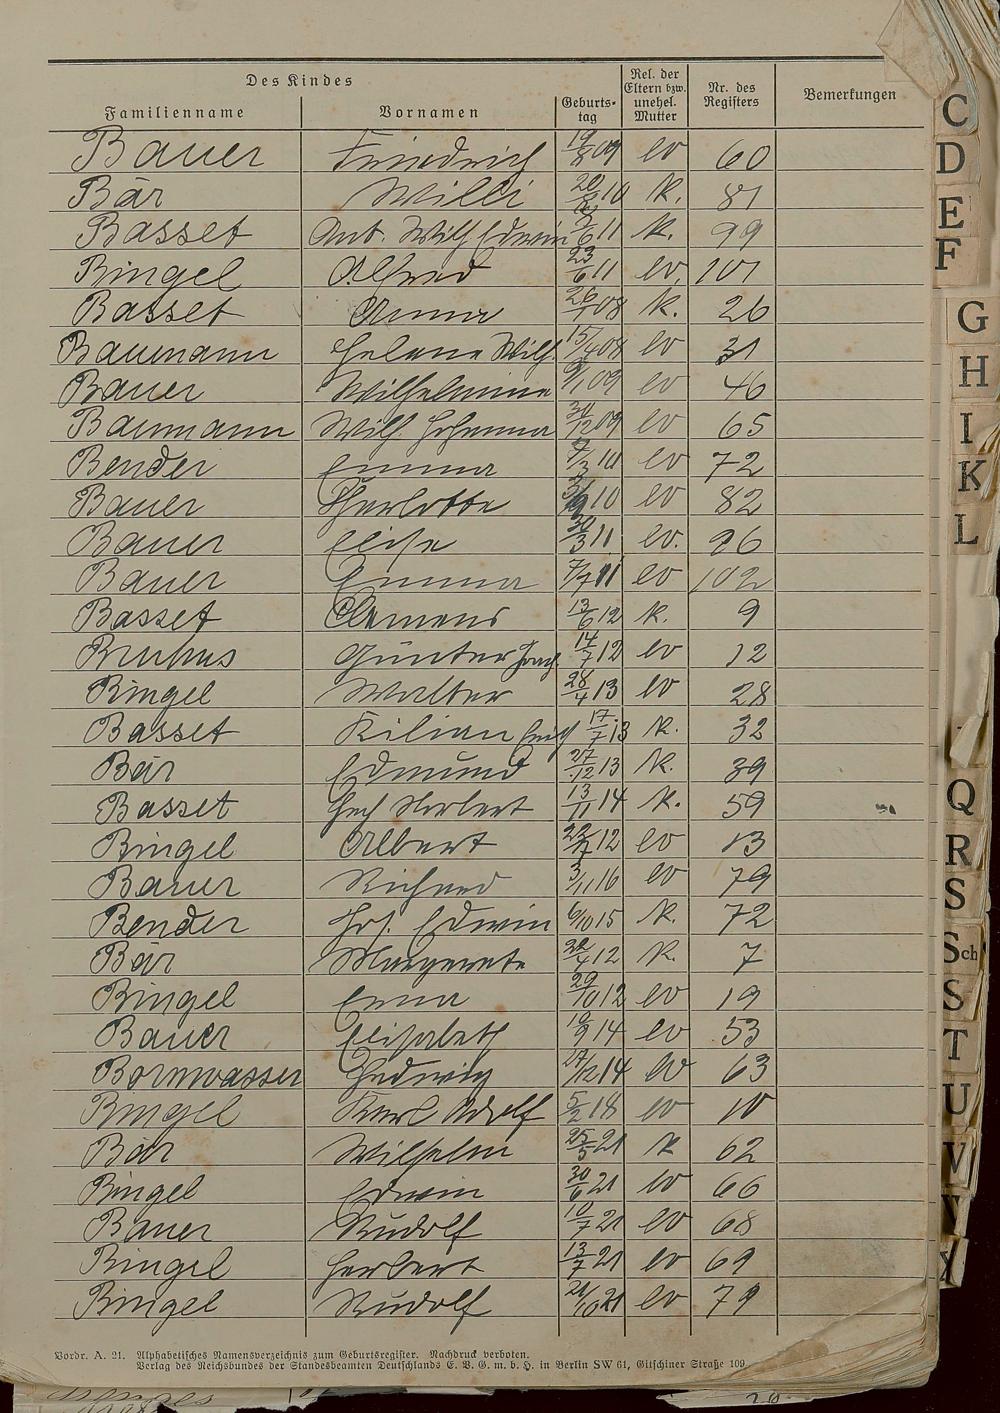 Des Kindes
Familienname Vornamen Geburts-tag Rel. der Eltern bzw. unehel. Mutter Nr. des Registers Bemerkungen
Bauer Friedrich 19/8 09 ev 60
Bär Willi 10 k. 81
Basset Ant. Wilh Edwin 6 11 k. 99
Bingel Alfred 23/6 11 ev. 101
Basset Anna 26/ 08 k. 26
Baumann Helene Wilh. 15/4 08 ev 31
Bauer Wilhelmine 9/1 09 ev 46
Baumann Wilh. Johanna 12 09 ev 65
Bender Emma 7/3 10 ev 72
Bauer Charlotte 10 ev 82
Bauer Elise 30/3 11 ev. 96
Bauer Emma 7/7 11 ev 102
Basset Clemens 13/6 12 k. 9
Bruhns Günter Joach. 14/7 12 ev 12
Bingel Walter 28/4 13 ev 28
Basset Kilian Erich 17/7 13 k. 32
Bär Edmund 27/12 13 k. 39
Basset Herbert 13/11 14 k. 59
Bingel Albert 12 ev 13
Bauer Richard 3/11 16 ev 79
Bender Jos. Edwin 6/10 15 k. 72
Bär Margarete 4 12 k. 7
Bingel Erna 29/10 12 ev 19
Bauer Elisabeth 19/9 14 ev 53
Bornwasser Hedwig 27/12 14 ev 63
Bingel Karl Adolf 5/2 18 ev 10
Bär Wilhelm 25/5 21 k 62
Bingel Edwin 30/6 21 ev 66
Bauer Rudolf 10/7 21 ev 68
Bingel Herbert 13/7 21 ev 69
Bingel Rudolf 21/10 21 ev 79
Vordr. A. 21. Alphabetisches Namensverzeichnis zum Geburtsregister. Nachdruck verboten.
Verlag des Reichsbundes der Standesbeamten Deutschlands E. V. G. m. b. H. in Berlin SW 61, Gitschiner Straße 109
C
D
E
F
G
H
I
K
L
Q
R
S
Sch
S
T
U
V